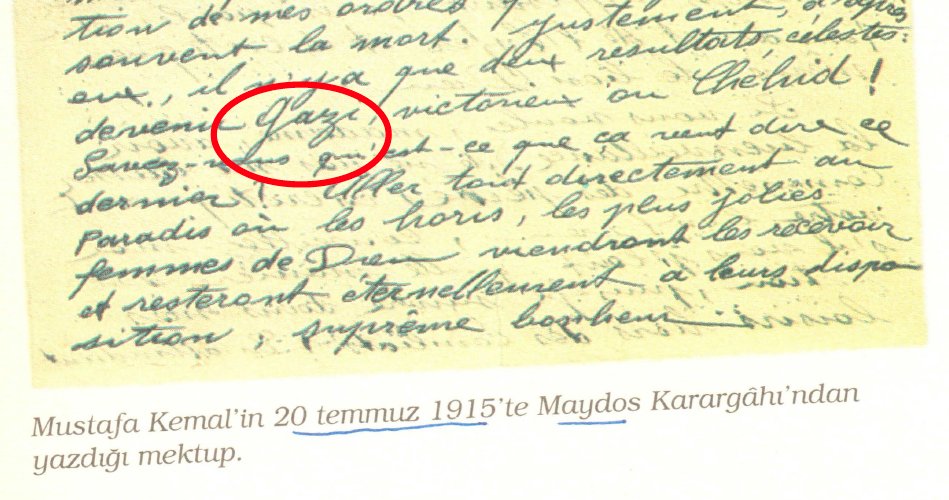 tion de mes ordres
souvent la mort. Justement, d'après
eux, il n'y a que deux résultats célestes:
devenir Gazi, victorieux ou Chéhid!
Savez-vous qu'est-ce que ça veut dire ce
dernier! Aller tout directement au
Paradis où les horis, les plus jolies
femmes de Dieu viendront les recevoir
et resteront éternellement à leurs dispo
sition, suprême bonheur.
Mustafa Kemal'in 20 temmuz 1915'te Maydos Karargâhı'ndan
yazdığı mektup.